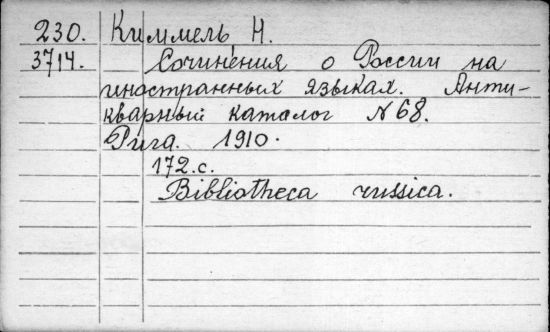 230. Киммель Н.
3714. Сочинения о России на
иностранных языках. Анти-
кварный каталог N 68.
Рига. 1910.
172.с.
Bibliotheca russica.